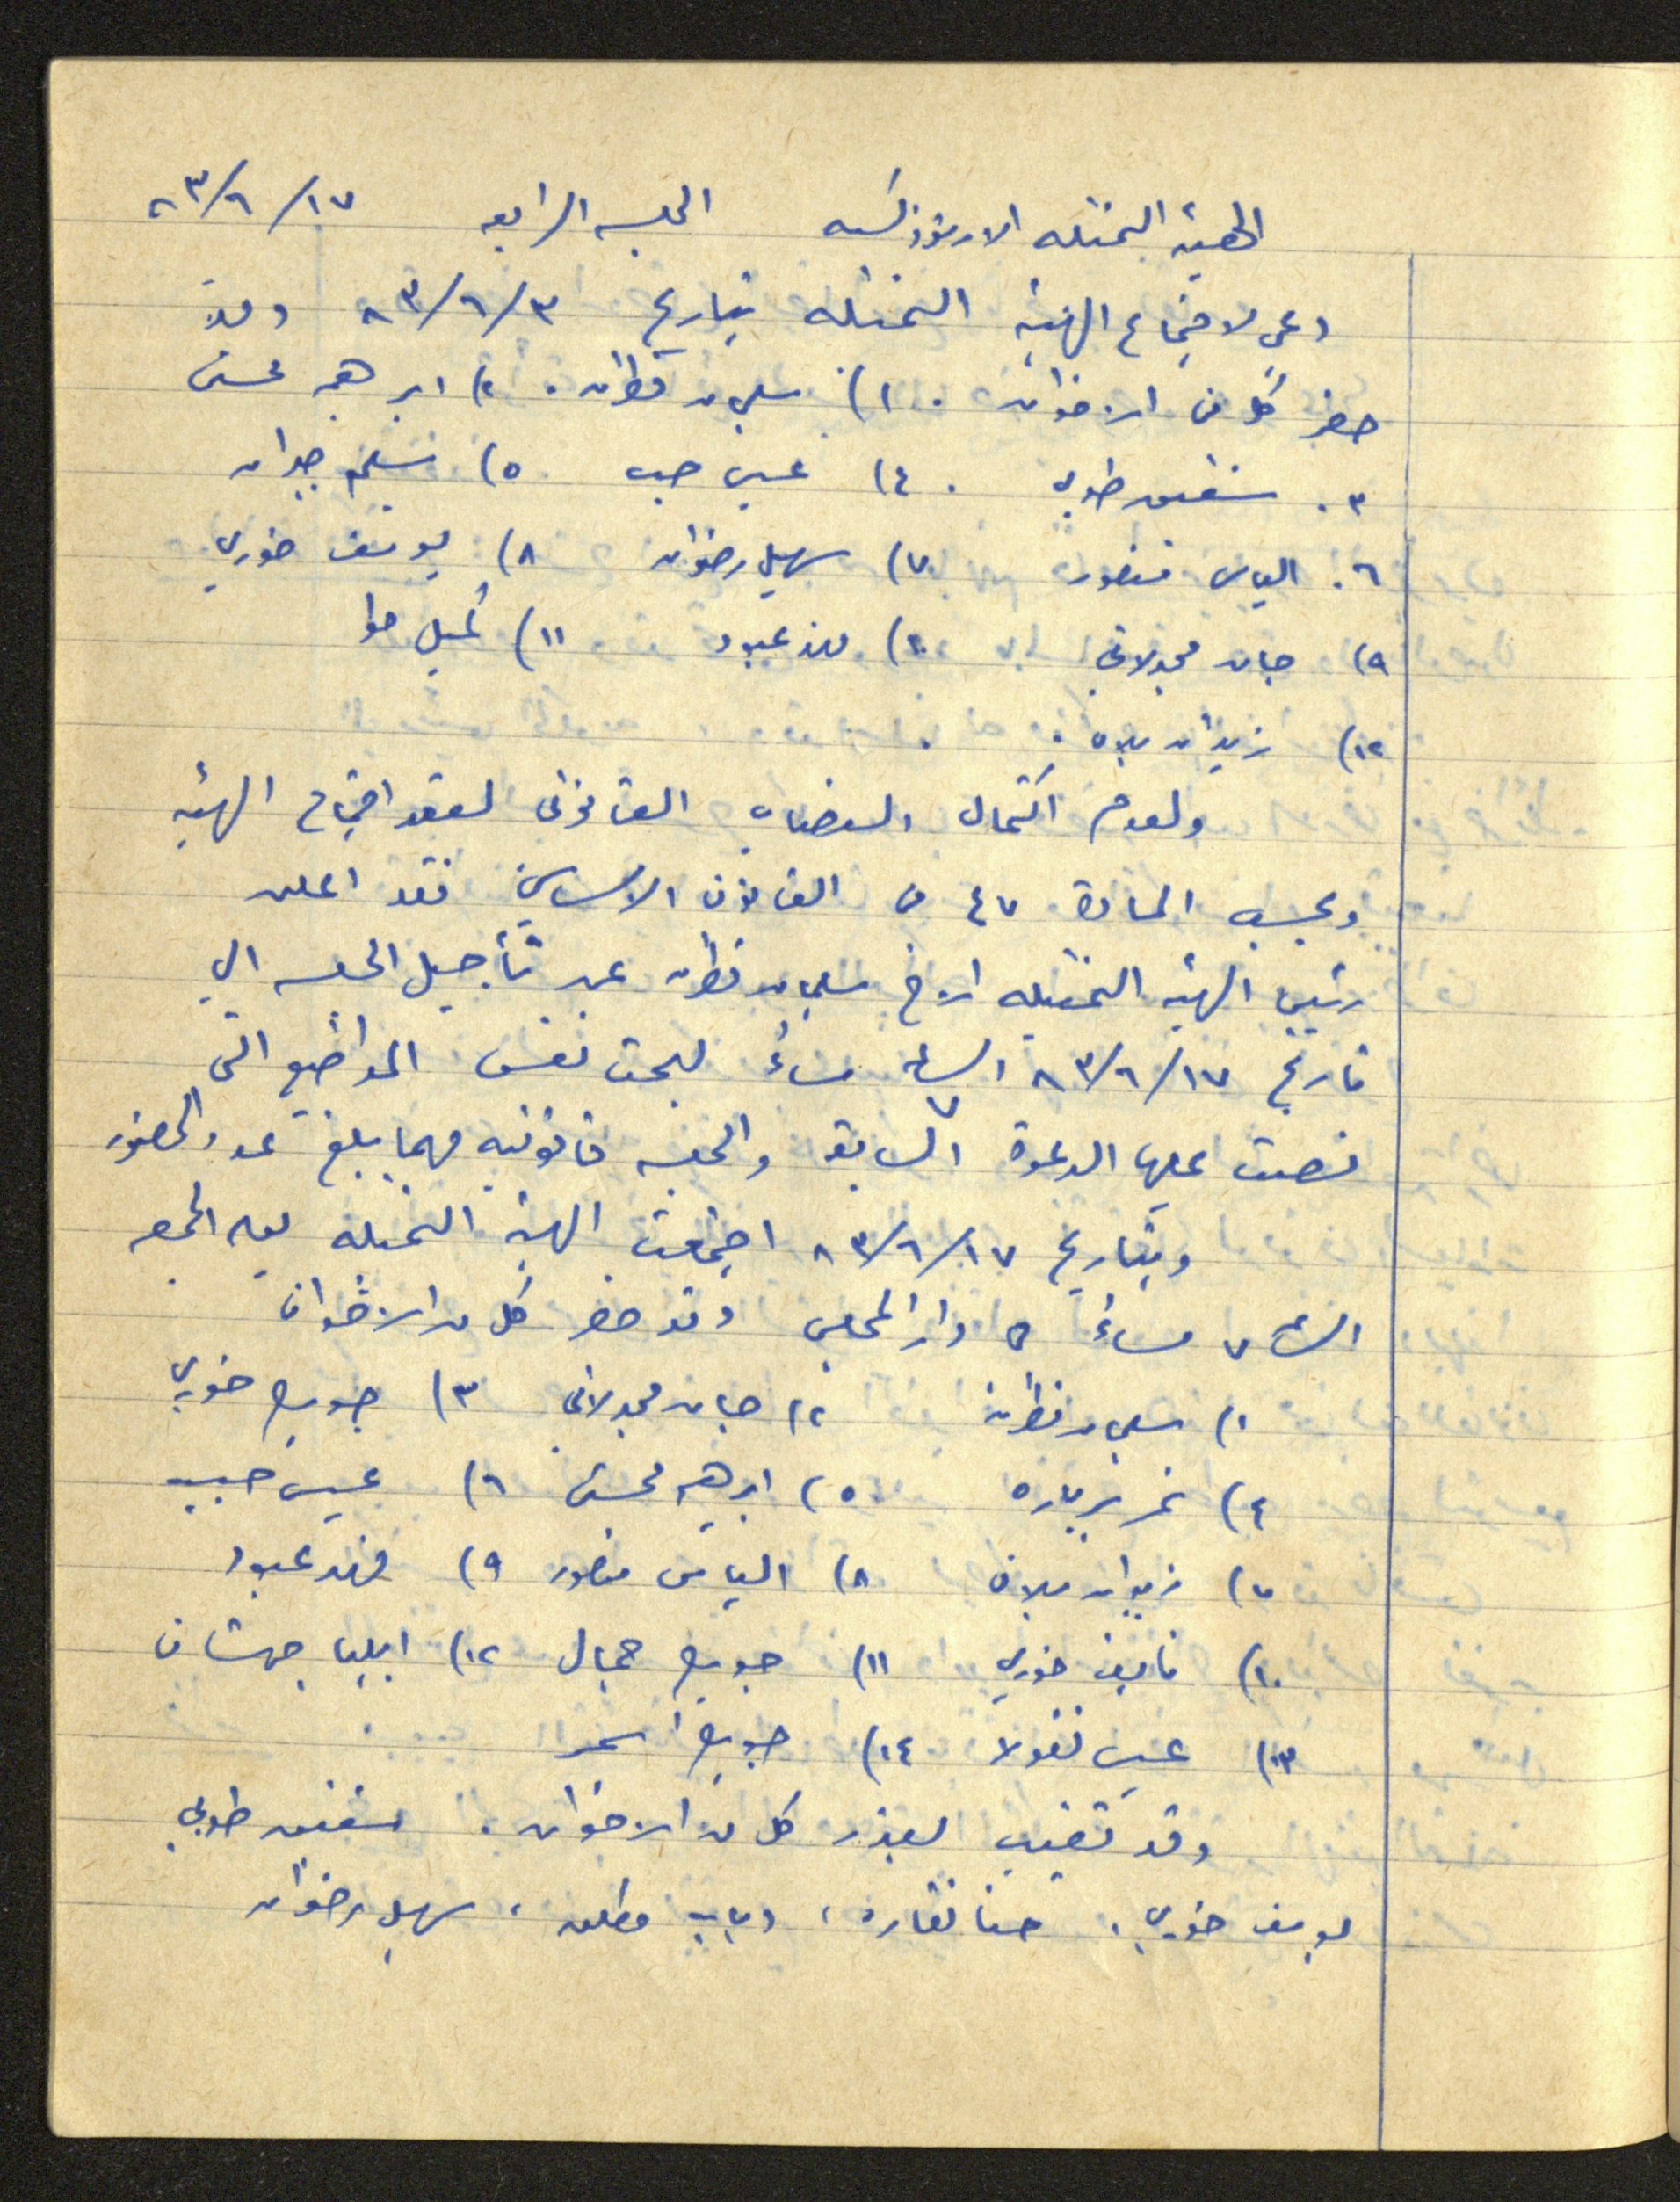 الهيئة التمثيله الارثوذكسيه الجلسه الرابعه ١٧/٦/٨٣
دعي لاجتماع الهيئة التمثيله بتاريخ ٣/٦/٨٣ وقد
حضر كل من الاخوان. ١) سليمان قطران. ٢) ابرهيم محسن
٣. شفيق طوبي. ٤) عيسى حبيب ٥) سليم جبران
٦. الياس منصور ٧) سهيل رضوان ٨) يوسف خوري
٩) جان مجدلاني ١٠) فهد عبود ١١) كميل
١٢) زيدان
ولعدم اكتمال النصاب القانوني لعقد اجتماع الهيئه
وبحسب المادة ٤٧ من القانون الاساسي فقد اعلن
رئيس الهيئه التمثيليه الاخ سليمان قطران عن تأجيل الجلسه الى
تاريخ ١٧/٦/٨٣ الساعة ٧ مساءً لبحث نفس المواضيع التي
نصت عليها الدعوة السابقه والجلسه قانونيه مهما بلغ عدد الحضور
وبتاريخ ١٧/٦/٨٣ اجتمعت الهيئه التمثيله يوم الجمعه
الساعة ٧ مساءً في دار المجلس وقد حضر كل من الاخوان
١) سليمان قطران ٢) جان مجدلاني ٣) جورج خوري
٤) نمر بربارة ٥) ابرهيم محسن ٦) عيسى حبيب
٧) زيدان ٨) الياس منصور ٩) فهد عبود
١٠) نايف خوري ١١) جورج جمال ١٢) ايليا جهشان
١٣) عيسى نقولا ١٤) جورج اسمر
وقد تغيب بعذر كل من الاخوان. شفيق طوبي
يوسف خوري، حنا نقاره، دياب مطلق، سهيل رضوان